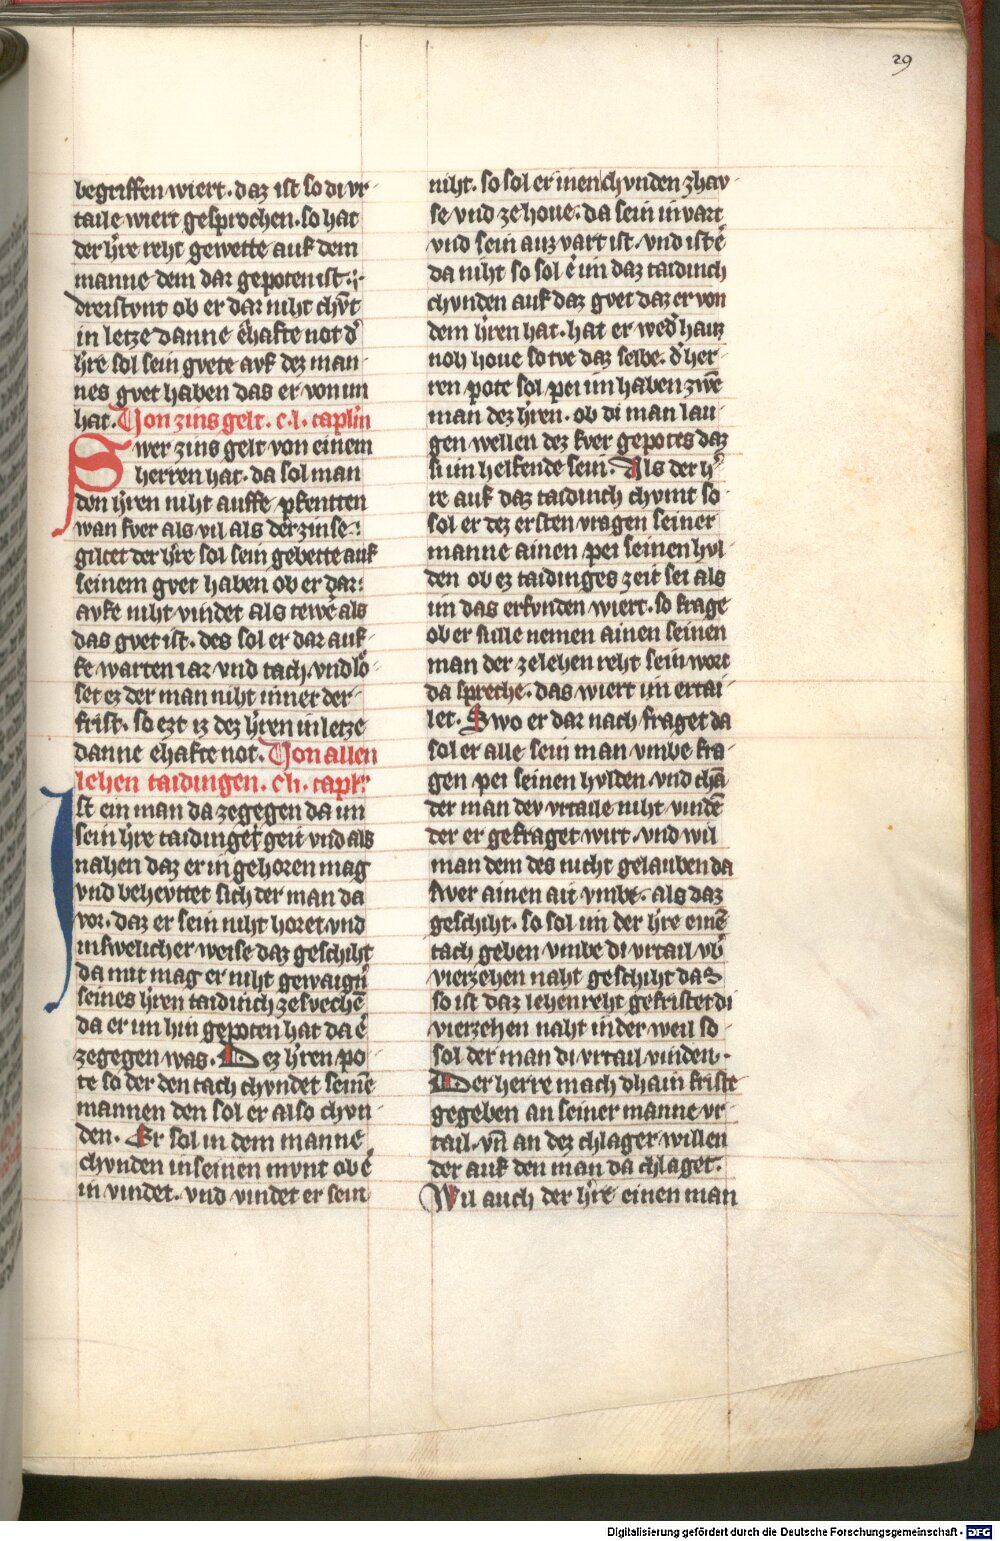 29
begriffen wiert. daz ist so di vr
taile wiert gesprochen. so hat
der h̄re reht gewette auf dem
manne dem dar gepoten ist.
dreistvnt ob er dar niht chvͤt
in letze danne ehafte not d̾
h̄re sol sein gvete avf dez man
nes gvet haben das er von im
hat. Von zins gelt. c. l. capl̄m
Swer zins gelt von einem
herren hat. da sol man
den h̄ren niht auffe pfenten
wan fver als vil als der zinse
giltet der h̄re sol sein gebette auf
seinem gvet haben ob er dar
avfe niht vindet als tewe̾ als
das gvet ist. des sol er dar auf
fe warten iar vnd tach. vnd lo̾
set ez der man niht inner der
frist. so ezt iz dez h̄ren in letze
danne ehafte not. Von allen
lehen taidingen. c li. capl̄
Ist ein man da zegegen da im
sein h̄re taidinget geit vnd als
nahen daz er in gehoren mag
vnd behevttet sich der man da
vor. daz er sein niht horet. vnd
in swelicher weise daz geschiht
da mit mag er niht gewaiḡn
seines h̄ren taidinch zesvechē
da er im hin gepoten hat da e̾
zegegen was. Dez h̄ren po
te so der den tach chvndet seinē
mannen den sol er also chvn
den. Er sol in dem manne
chvnden in seinen mvnt ob e̾
in vindet. vnd vindet er sein
niht. so sol er inen chvnden zhav
se vnd ze houe. da sein in vart
vnd sein auz vart ist. vnd ist e̾
da niht so sol e̾ im daz taidinch
chvnden auf daz gvet daz er von
dem h̄ren hat. hat er wed̾ hauz
noh houe so tve daz selbe. d̾ her
ren pote sol pei im haben zwē
man dez h̄ren. ob di man lau
gen wellen dez fver gepotes daz
si im helfende sein. Als der h̾
re auf daz taidinch chvmt so
sol er dez ersten vragen seiner
manne ainen pei seinen hvl
den ob ez taidinges zeit sei als
im das erfvnden wiert. so frage
ob er sulle nemen ainen seinen
man der ze lehen reht sein wort
da spreche. das wiert im ertai
let. Swo er dar nach fraget da
sol er alle sein man vmbe fra
gen pei seinen hvlden. vnd chā
der man dev vrtaile niht vindē
der er gefraget wirt. vnd wil
man dem des nicht gelauben da
swer ainen ait vmbe. als daz
geschiht. so sol im der h̄re einē
tach geben vmbe di vrtail vb̾
vierzehen naht geschiht das
so ist daz lehen reht gefristet di
vierzehen naht in der weil so
sol der man di vrtail vinden.
Der herre mach dhain friste
gegeben an seiner manne vr
tail. vn̄ an dez chlager willen
der auf den man da chlaget.
Wil auch der h̄re einen man
Digitalisierung gefördert durch die Deutsche Forschungsgemeinschaft - DFG